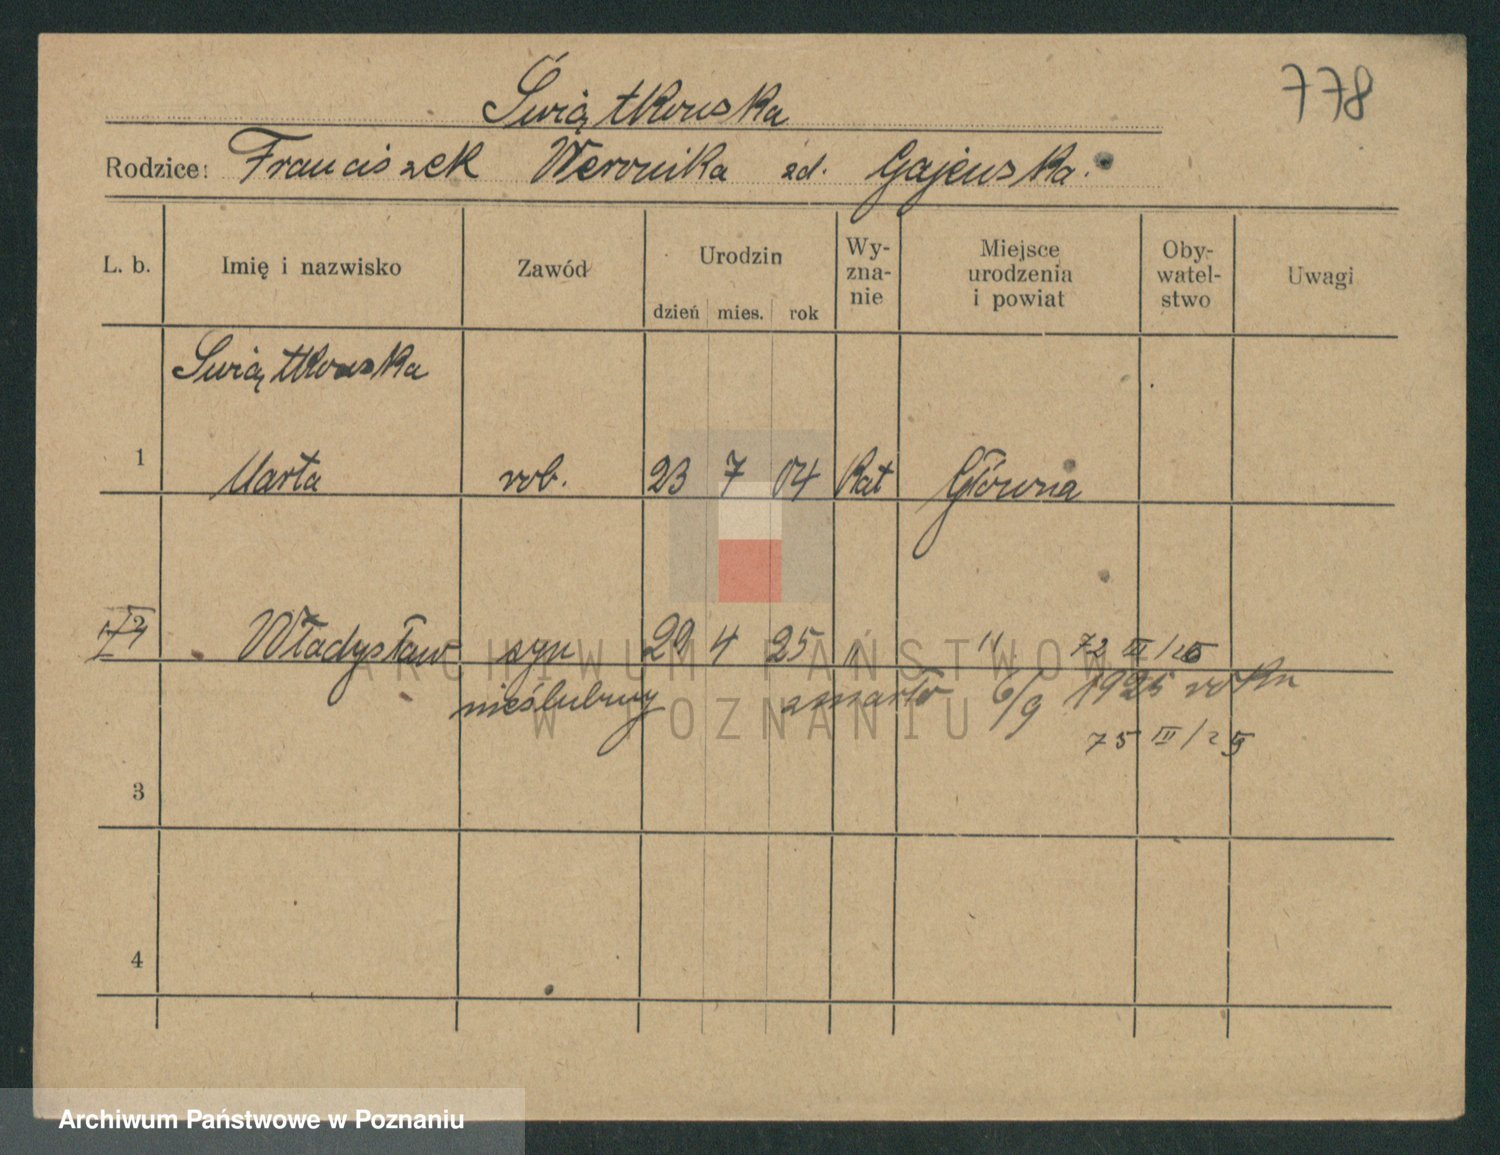 778
Świątkowska
Rodzice: Franciszek Weronika zd. Gajewska.
L. b. Imię i nazwisko Zawód Urodzin Wy-zna-nie Miejsce urodzenia i powiat Oby-watel-stwo Uwagi
dzień mies. rok
Świątkowska
1 Marta rob. 23 7 04 Kat Główna
2 Władysław syn 29 4 25 " " 72 III/25
nieślubny zmarło 6/9 1925 roku
75 III/25
3
4
ARCHIWUM PAŃSTWOWE
W POZNANIU
Archiwum Państwowe w Poznaniu